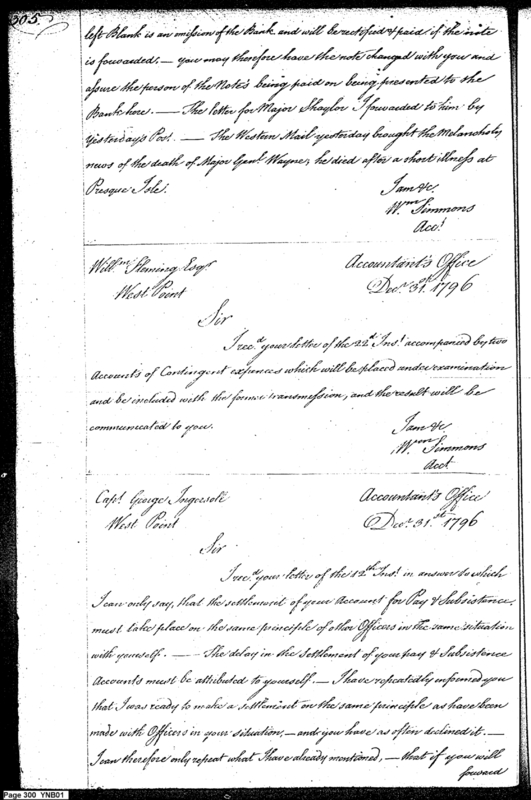 305
left Blank is an omission of the Bank and will be rectified & paid if the note
is forwarded. — you may therefore have the note changed with you and
assure the person of the Note's being paid on being presented to the
Bank here. — The letter for Major Shaylor I forwarded to him by
Yesterday's Post. — The Western Mail yesterday brought the Melancholy
news of the death of Major Genl Wayne, he died after a short illness at
Presque Isle.
I am &c.
Wm Simmons
Acct
Willm Fleming Esqr Accountant's Office
West Point Decr 31st 1796
Sir
I recd your letter of the 22d Inst accompanied by two
Accounts of Contingent expences which will be placed under examination
and be included with the former transmission, and the result will be
communicated to you.
I am &c.
Wm Simmons
Acct
Capt George Ingersoll Accountant's Office
West Point Decr 31st 1796
Sir
I recd your letter of the 12th Inst in answer to which
I can only say, that the settlement of your Account for Pay & Subsistance,
must take place on the same principle of other Officers in the same situation
with yourself. — The delay in the Settlement of your pay & Subsistence
Accounts must be attributed to yourself. — I have repeatedly informed you
that I was ready to make a settlement on the same principle as have been
made with Officers in your situation, — and you have as often declined it. —
I can therefore only repeat what I have already mentioned, — that if you will
forward
Page 300 YNB01